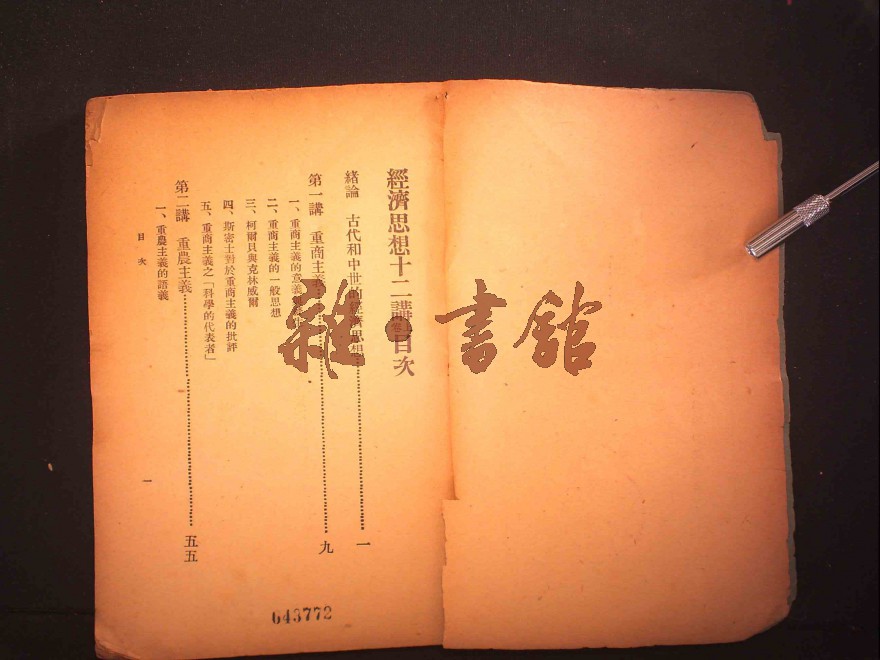 經濟思想十二講目次
緒論 古代和中世的經濟思想 一
第一講 重商主義 九
一、重商主義的意義
二、重商主義的一般思想
三、柯爾貝與克林威爾
四、斯密士對於重商主義的批評
五、重商主義之「科學的代表者」
第二講 重農主義 五五
一、重農主義的語義
目次
一
643772
雜·書館